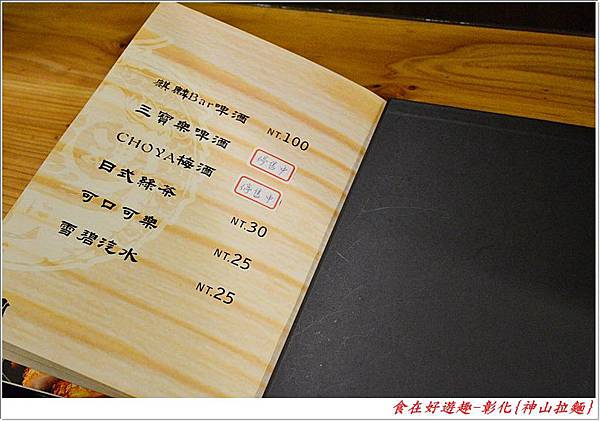 麒麟Bar啤酒 NT.100
三寶樂啤酒 停售中
CHOYA梅酒 停售中
日式綠茶 NT.30
可口可樂 NT.25
雪碧汽水 NT.25
食在好遊趣-彰化{神山拉麵}